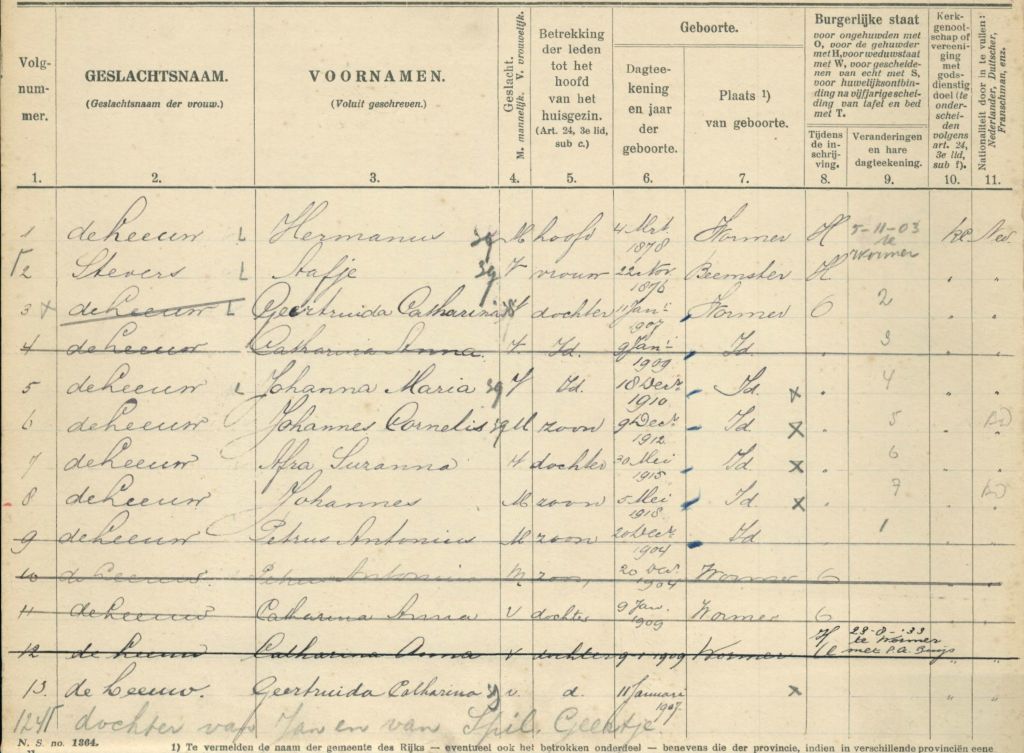 Volg-
num-
mer.
GESLACHTSNAAM.
(Geslachtsnaam der vrouw.)
VOORNAMEN.
(Voluit geschreven.)
Geslacht.
M. mannelijk. V. vrouwelijk.
Betrekking
der leden
tot het
hoofd
van het
huisgezin.
(Art. 24, 3e lid,
sub c.)
Geboorte.
Dagtee-
kening
en jaar
der
geboorte.
Plaats 1)
van geboorte.
Burgerlijke staat
voor ongehuwden met
O, voor de gehuwden
met H, voor weduwstaat
met W, voor gescheide-
nen van echt met S,
voor huwelijksontbin-
ding na vijfjarige schei-
ding van tafel en bed
met T.
Tijdens
de in-
schrij-
ving.
Veranderingen
en hare
dagteekening.
Kerk-
genoot-
schap of
vereeni-
ging
met
gods-
dienstig
doel (te
onder-
schei-
den
volgens
art. 24,
3e lid,
sub f).
Nationaliteit door in te vullen:
Nederlander, Duitscher,
Franschman, enz.
1. 2. 3. 4. 5. 6. 7. 8. 9. 10. 11.
1 de Leeuw L Hermanus 39 M hoofd 4 Mrt. 1878 Wormer H 5-11-03 te Wormer Ned.
2 Stevers L 39 V vrouw 22 Nov 1876 Beemster H
3 x de Leeuw L Geertruida Catharina V dochter 11 Jani 1907 Wormer O 2
4 de Leeuw Catharina Anna. V. Id. 9 Jani 1909 Id. 3
5 de Leeuw L Johanna Maria 39 V Id. 18 Decr 1910 Id. x 4
6 de Leeuw Johannes Cornelis 39 M zoon 9 Decr 1912 Id. x 5
7 de Leeuw Afra Suzanna V dochter 30 Mei 1915 Id. x 6
8 de Leeuw Johannes M zoon 5 Mei 1918 Id. x 7
9 de Leeuw Petrus Antonius M zoon 20 Decr 1904 Id. 1
10 de Leeuw. Petrus Antonius M. zoon, 20 Dec. 1904 Wormer O
11 de Leeuw Catharina Anna V dochter 9 Jan. 1909 Wormer O
12 de Leeuw Catharina Anna V dochter 9-1-1909 Wormer H 23-8-'33 te Wormer met P.A. Buijs
13. de Leeuw. Geertruida Catharina 39 v. d. 11 Januari 1907. x
dochter van Jan en van Spil, Geertje.
N. S. no. 1364.
1) Te vermelden de naam der gemeente des Rijks — eventueel ook het betrokken onderdeel — benevens die der provincie, indien in verschillende provinciën eene